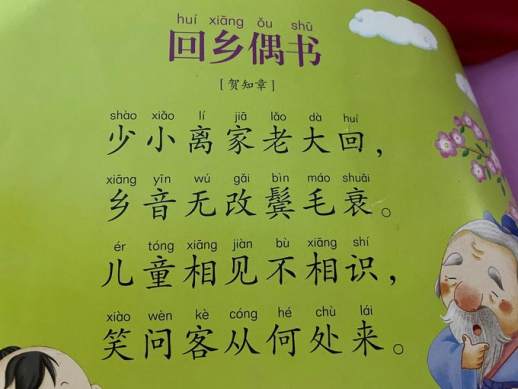 huí xiāng ǒu shū
回乡偶书
[贺知章]
shào xiǎo lí jiā lǎo dà huí
少小离家老大回，
xiāng yīn wú gǎi bìn máo shuāi
乡音无改鬓毛衰。
ér tóng xiāng jiàn bù xiāng shí
儿童相见不相识，
xiào wèn kè cóng hé chù lái
笑问客从何处来。